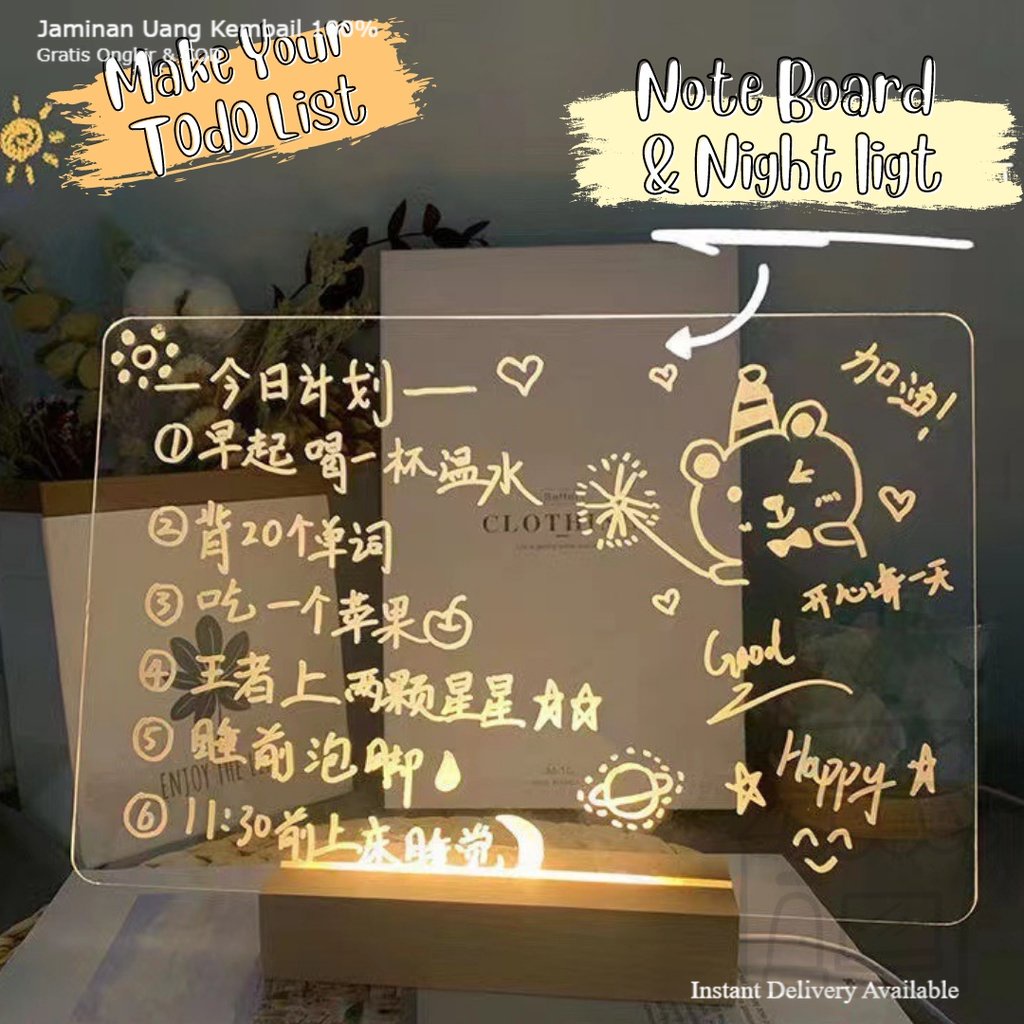 Jaminan Uang Kembail 100%
Gratis Ongkir & COD
Make Your
TOdO List
Note Board
& Night ligt
一今日计划一
①早起喝一杯温水
②背20个单词
③吃一个苹果
④王者上两颗星星
⑤睡前泡脚
⑥11:30前上床睡觉
加油!
开心每一天
Good
Happy
CLOTHI
ENJOY THE
Instant Delivery Available